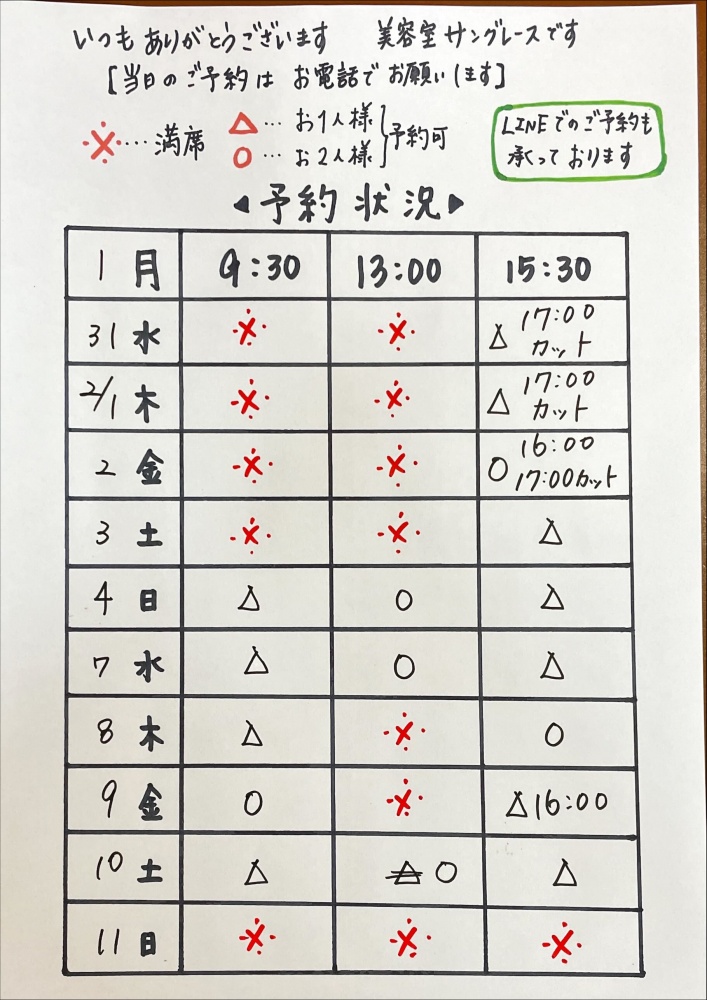 いつもありがとうございます 美容室サングレースです
[当日のご予約は お電話でお願いします]
※…満席
△…お1人様
○…お2人様
予約可
LINEでのご予約も
承っております
◀予約状況▶
1月 9:30 13:00 15:30
31 水 ※ ※ △ 17:00 カット
2/1 木 ※ ※ △ 17:00 カット
2 金 ※ ※ ○ 16:00 17:00カット
3 土 ※ ※ △
4 日 △ ○ △
7 水 △ ○ △
8 木 △ ※ ○
9 金 ○ ※ △16:00
10 土 △ △ ○ △
11 日 ※ ※ ※